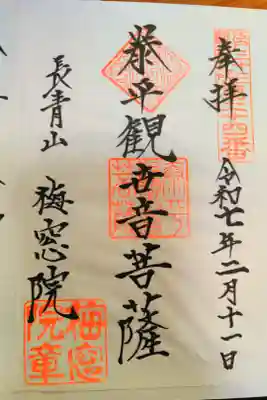 奉拝
令和七年二月十一日
泰平観世音菩薩
長青山
梅窓院
梅窓
院章